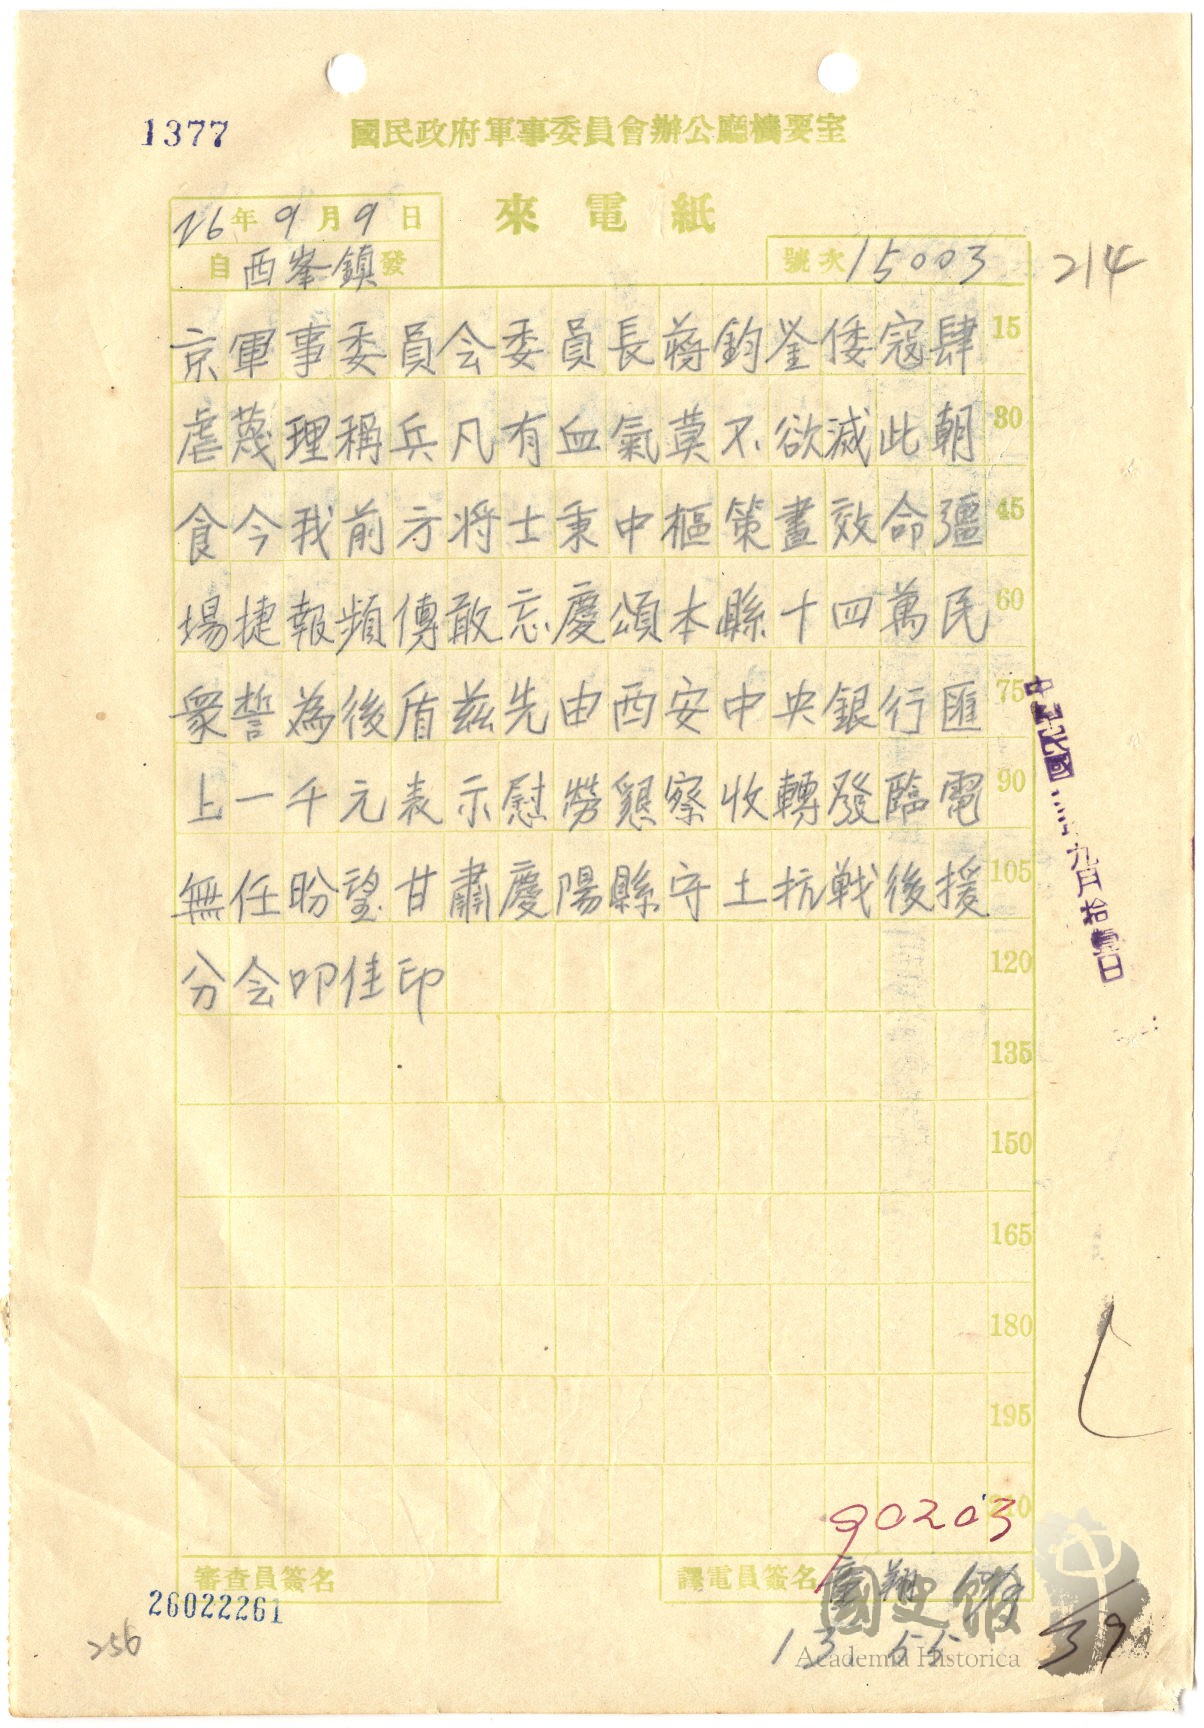 1377
國民政府軍事委員會辦公廳機要室
來電紙
26年9月9日
自西峯鎮發
號次15003
214
京軍事委員会委員長蔣鈞鉴倭寇肆 15
虐蔑理稱兵凡有血氣莫不欲滅此朝 30
食今我前方將士秉中樞策畫效命疆 45
場捷報頻傳敢忘慶頌本縣十四萬民 60
衆誓為後盾茲先由西安中央銀行匯 75
上一千元表示慰勞懇察收轉發臨電 90
無任盼望甘肅慶陽縣守土抗戰後援 105
分会叩佳印 120
135
150
165
180
195
210
中華民國 九月拾壹日
90203
審查員簽名
譯電員簽名
26022261
256
13 55
39
國史館
Academia Historica